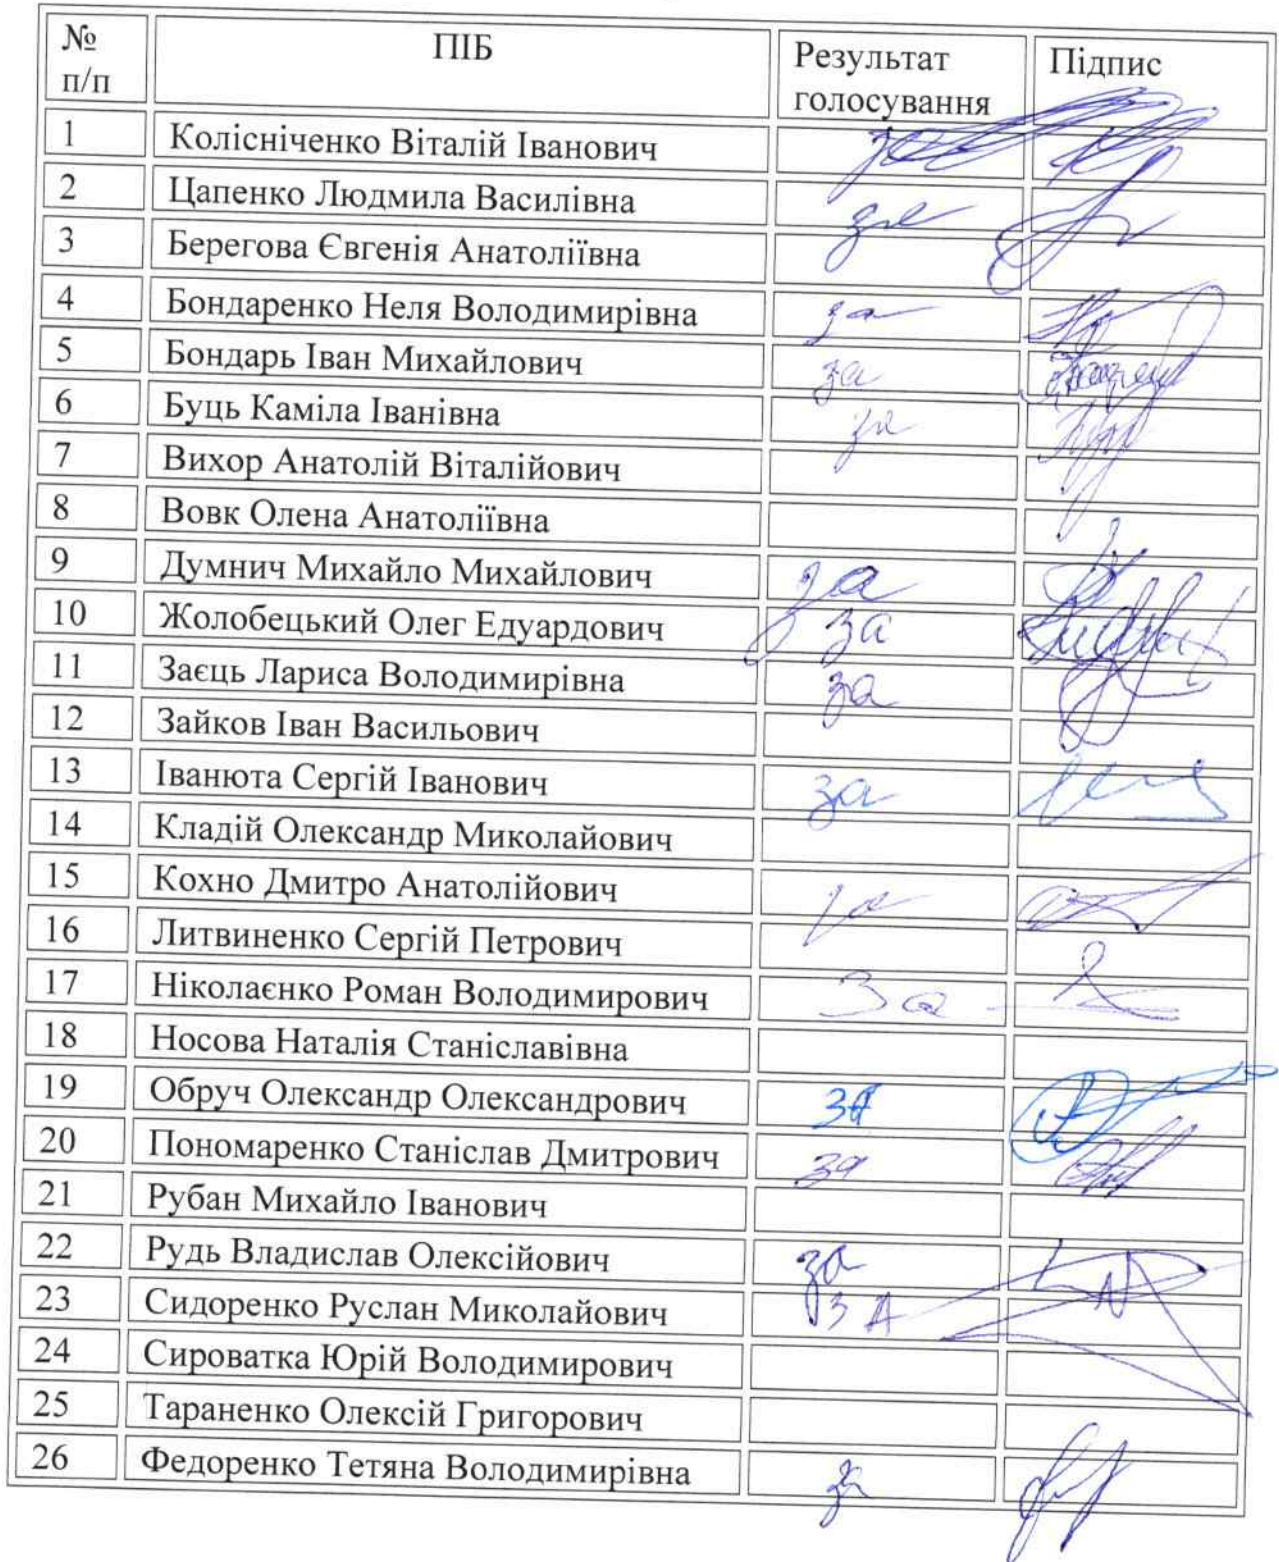 № п/п ПІБ Результат голосування Підпис
1 Колісніченко Віталій Іванович за
2 Цапенко Людмила Василівна за
3 Берегова Євгенія Анатоліївна
4 Бондаренко Неля Володимирівна за
5 Бондарь Іван Михайлович за
6 Буць Каміла Іванівна за
7 Вихор Анатолій Віталійович
8 Вовк Олена Анатоліївна
9 Думнич Михайло Михайлович за
10 Жолобецький Олег Едуардович за
11 Заєць Лариса Володимирівна за
12 Зайков Іван Васильович
13 Іванюта Сергій Іванович за
14 Кладій Олександр Миколайович
15 Кохно Дмитро Анатолійович за
16 Литвиненко Сергій Петрович
17 Ніколаєнко Роман Володимирович За
18 Носова Наталія Станіславівна
19 Обруч Олександр Олександрович ЗА
20 Пономаренко Станіслав Дмитрович за
21 Рубан Михайло Іванович
22 Рудь Владислав Олексійович за
23 Сидоренко Руслан Миколайович ЗА
24 Сироватка Юрій Володимирович
25 Тараненко Олексій Григорович
26 Федоренко Тетяна Володимирівна за